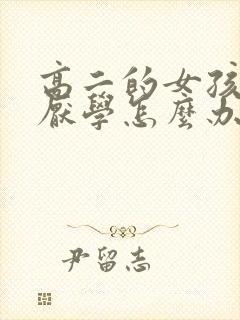 高二的女孩
厭學怎麼办
尹留志